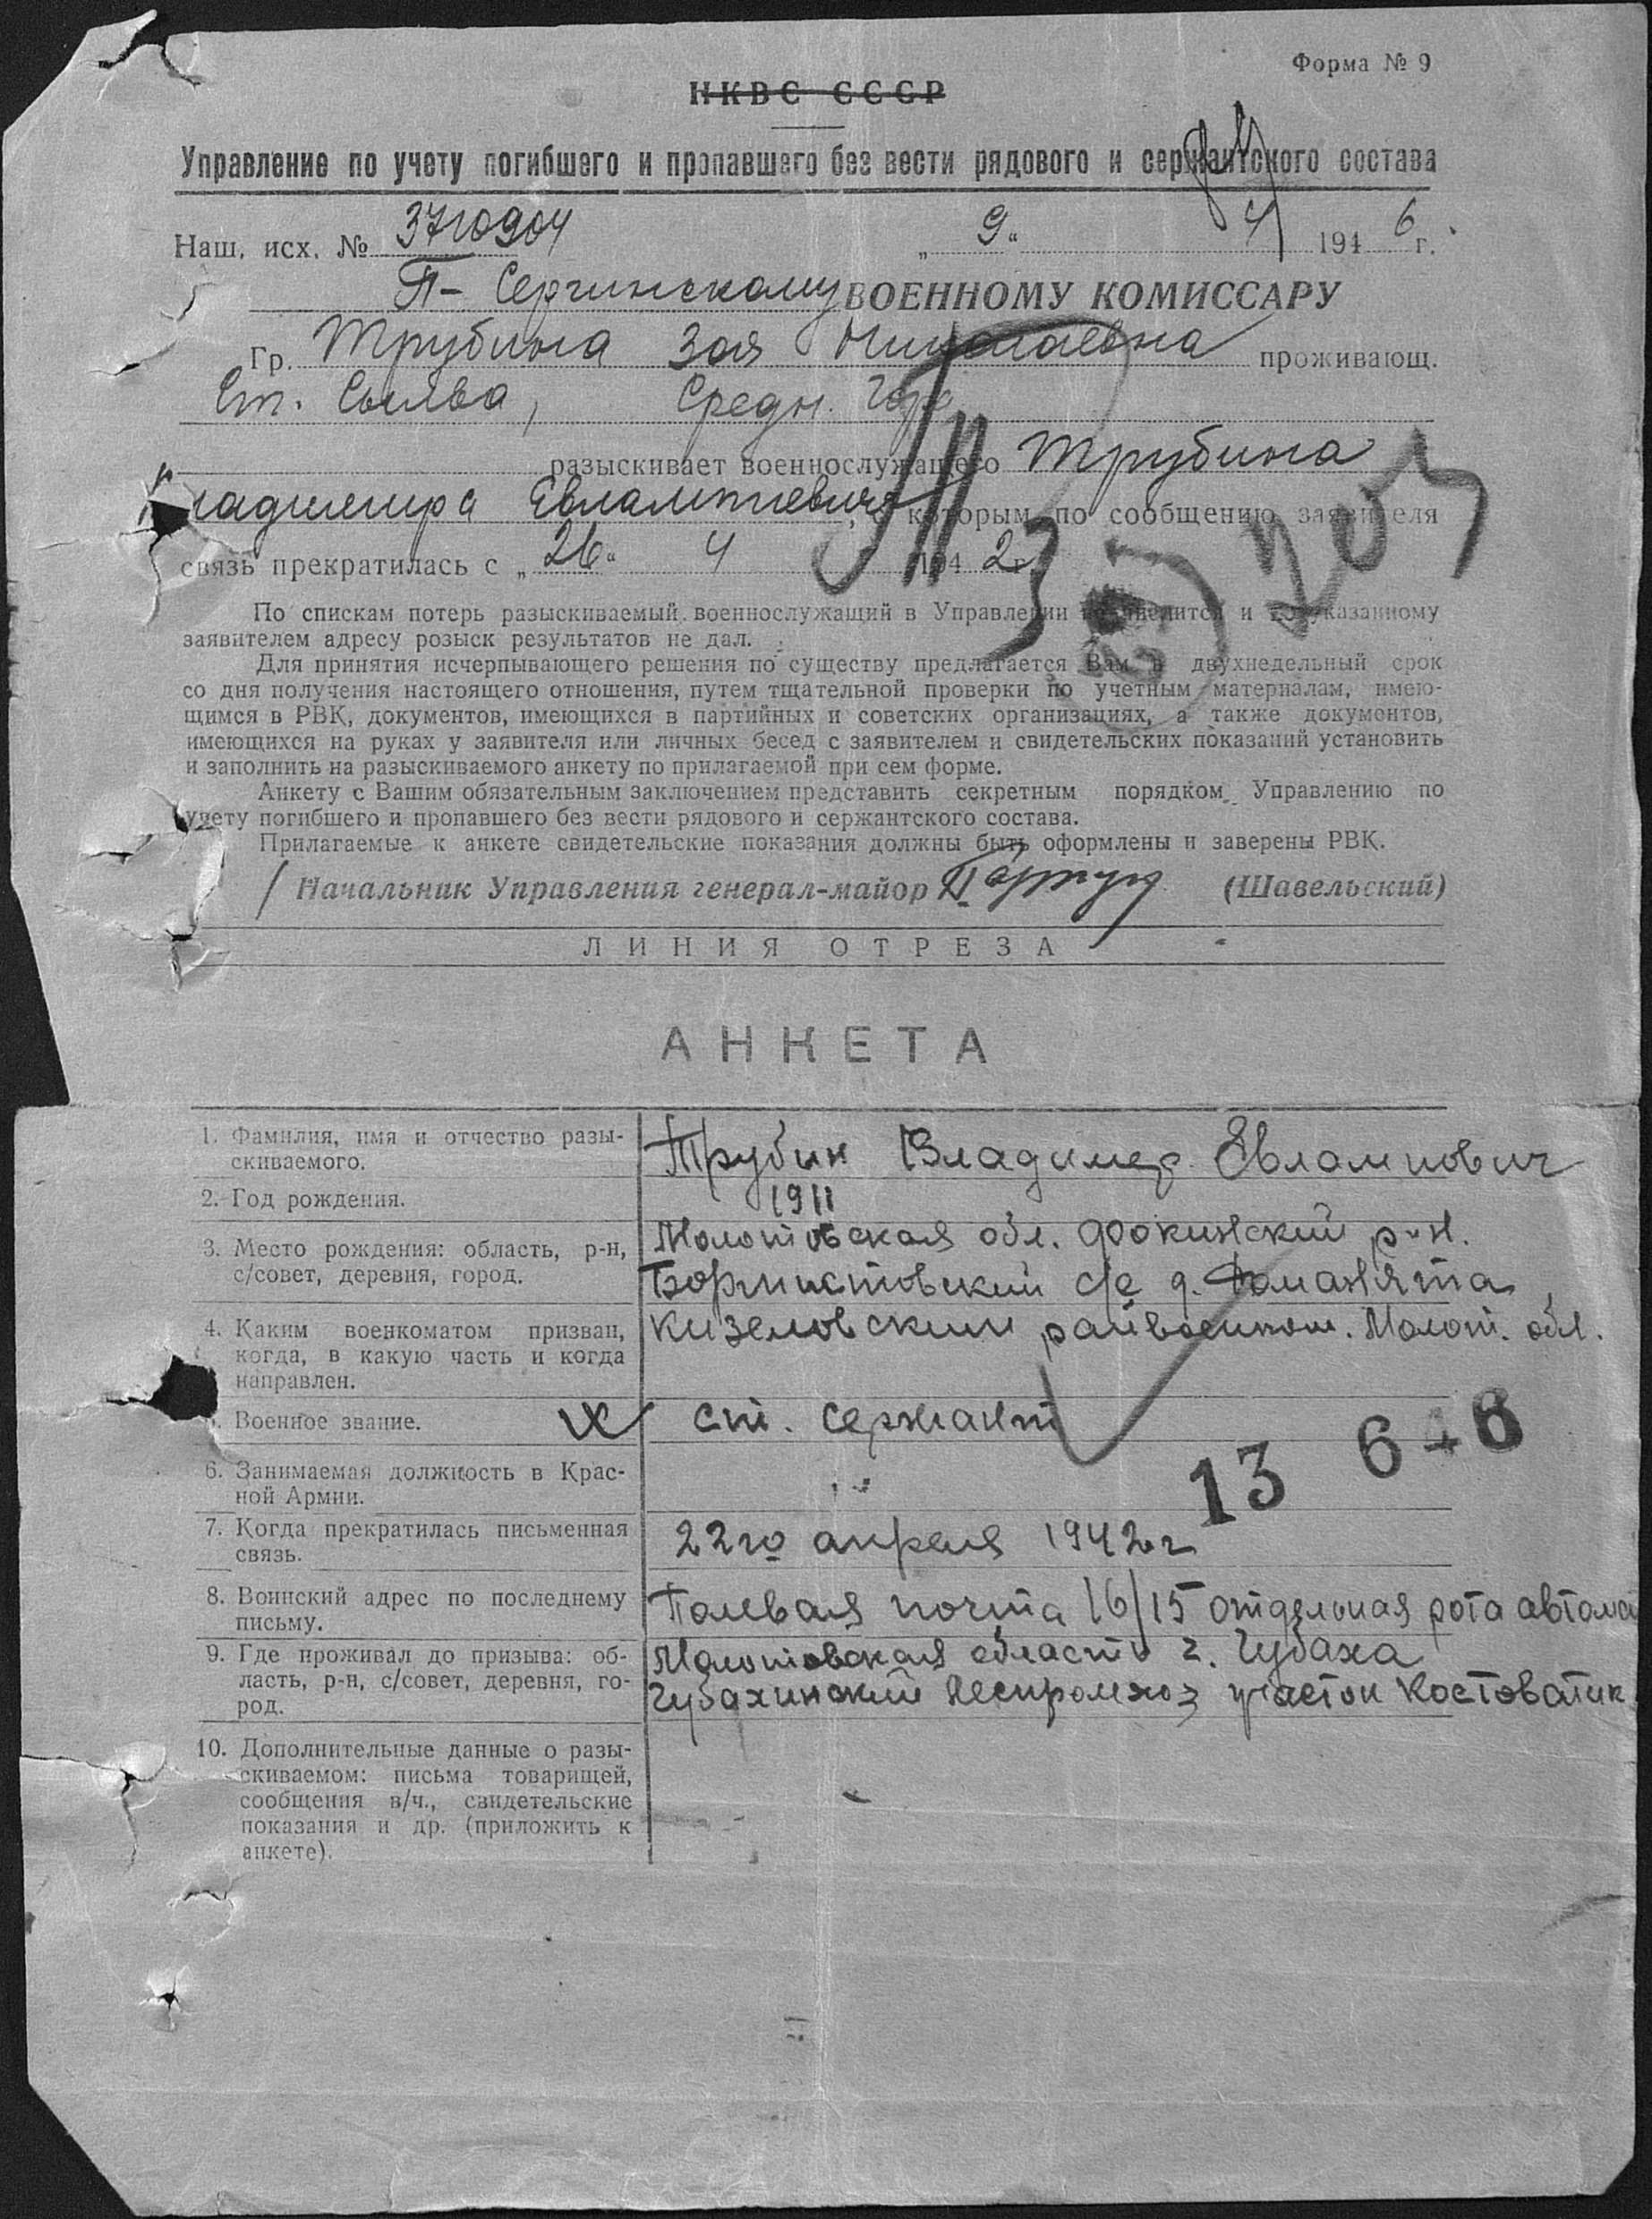 Форма № 9
НКВС СССР
Управление по учету погибшего и пропавшего без вести рядового и сержантского состава
Наш. исх. № 3710904 „ 9 “ 4 194 6 г.
П- Сергинскому ВОЕННОМУ КОМИССАРУ
Гр. Трубина Зоя Николаевна проживающ.
Ст. Сылва, Средн.
разыскивает военнослужащего Трубина
Владимира Евлампиевича, с которым по сообщению заявителя
связь прекратилась с „ 26 “ 4 194 2 г.
203
По спискам потерь разыскиваемый военнослужащий в Управлении не значится и по указанному
заявителем адресу розыск результатов не дал.
Для принятия исчерпывающего решения по существу предлагается Вам в двухнедельный срок
со дня получения настоящего отношения, путем тщательной проверки по учетным материалам, имею-
щимся в РВК, документов, имеющихся в партийных и советских организациях, а также документов,
имеющихся на руках у заявителя или личных бесед с заявителем и свидетельских показаний установить
и заполнить на разыскиваемого анкету по прилагаемой при сем форме.
Анкету с Вашим обязательным заключением представить секретным порядком Управлению по
учету погибшего и пропавшего без вести рядового и сержантского состава.
Прилагаемые к анкете свидетельские показания должны быть оформлены и заверены РВК.
/ Начальник Управления генерал-майор (Шавельский)
ЛИНИЯ ОТРЕЗА
АНКЕТА
1. Фамилия, имя и отчество разы-
скиваемого.
Трубин Владимер Евлампович
2. Год рождения.
1911
3. Место рождения: область, р-н,
с/совет, деревня, город.
Молотовская обл. Фокинский р-н.
Бормистовский с/с д. Романята
4. Каким военкоматом призван,
когда, в какую часть и когда
направлен.
Кизеловским райвоенком. Молот. обл.
5. Военное звание.
ст. сержант
6. Занимаемая должность в Крас-
ной Армии.
13 6 46
7. Когда прекратилась письменная
связь.
22го апреля 1942 г
8. Воинский адрес по последнему
письму.
Полевая почта 16/15 отдельная рота автома
9. Где проживал до призыва: об-
ласть, р-н, с/совет, деревня, го-
род.
Молотовская область г. Губаха
Губахинский Леспромхоз участок Костоватик
10. Дополнительные данные о разы-
скиваемом: письма товарищей,
сообщения в/ч., свидетельские
показания и др. (приложить к
анкете).